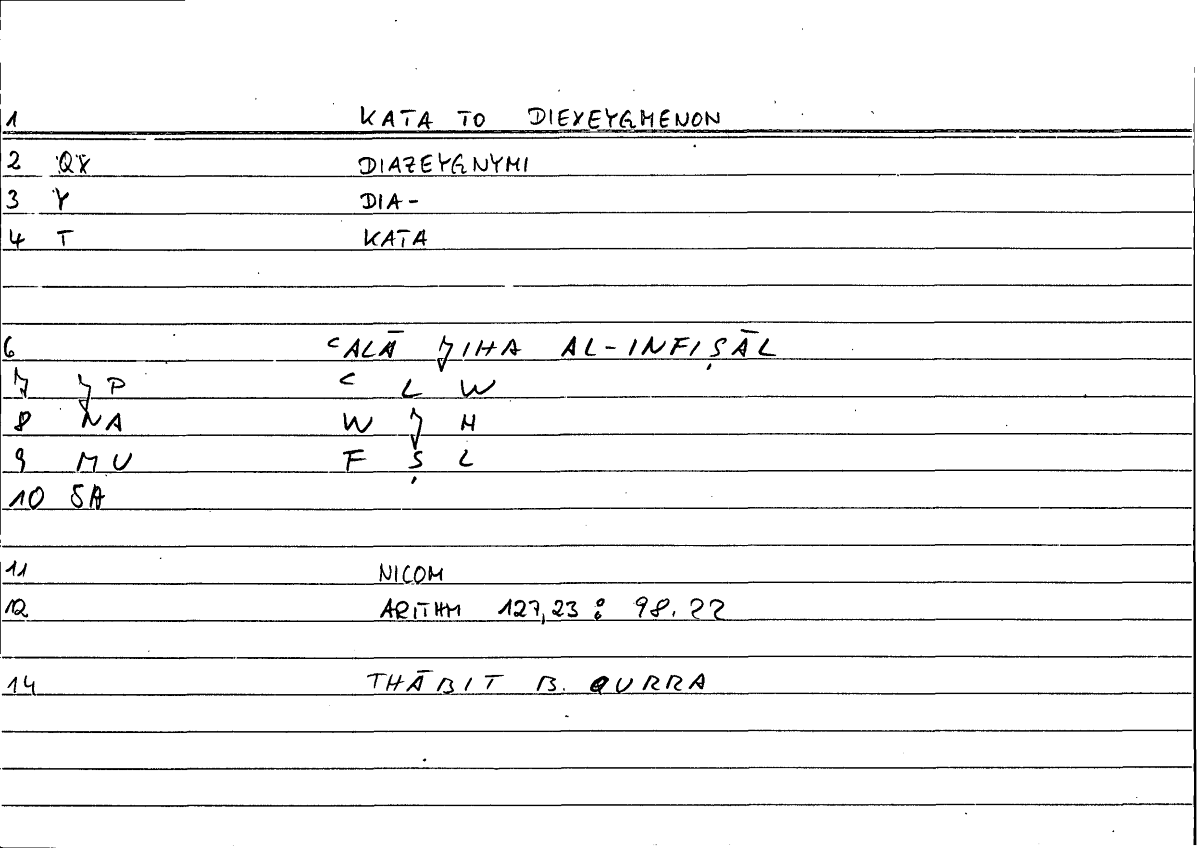 1 KATA TO DIEXEYGMENON
2 QX DIAZEYGNYMI
3 Y DIA-
4 T KATA
6 ʿALĀ ǦIHA AL-INFIṢĀL
7 ǦP ʿ L W
8 NA W Ǧ H
9 MU F Ṣ L
10 SA
11 NICOM
12 ARITHM 127,23 : 98.22
14 THĀBIT B. QURRA